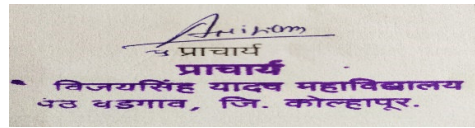 प्राचार्य
प्राचार्य
विजयसिंह यादव महाविद्यालय
पेठ वडगाव, जि. कोल्हापूर.